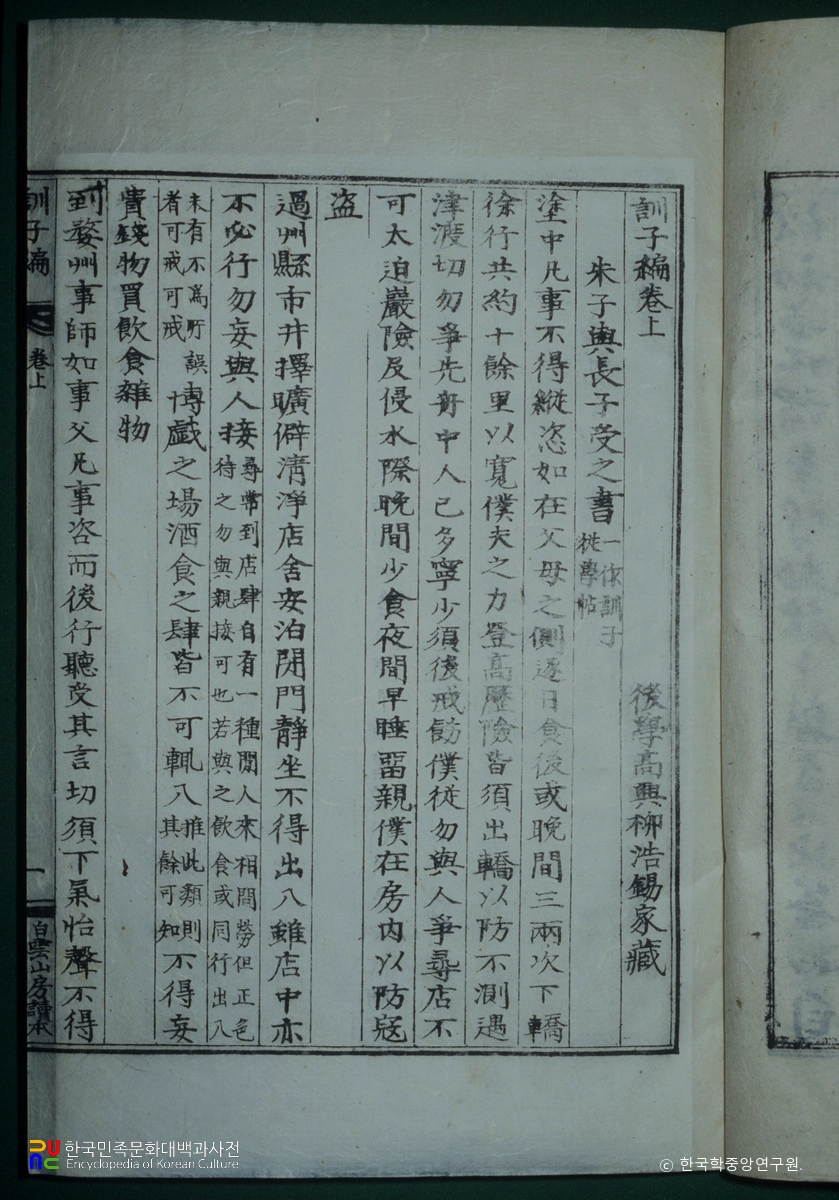 訓子編卷上
後學高興柳浩錫家藏
朱子與長子受之書 一作訓子從學帖
塗中凡事不得縱恣如在父母之側逐日食後或晚間三兩次下轎
徐行共約十餘里以寬僕夫之力登高歷險皆須出轎以防不測遇
津渡切勿爭先舟中人已多寧少須後戒飭僕從勿與人爭尋店不
可太迫巖險及侵水際晚間少食夜間早睡留親僕在房內以防寇
盜
過州縣市井擇曠僻淸淨店舍安泊閉門靜坐不得出入雖店中亦
不必行勿妄與人接 尋常到店肆自有一種閒人來相問勞但正色待之勿與親接可也若與之飮食或同行出入
未有不爲所誤者可戒可戒 博戱之場酒食之肆皆不可輒入 推此類則其餘可知 不得妄
費錢物買飮食雜物
到婺州事師如事父凡事咨而後行聽受其言切須下氣怡聲不得
訓子編
卷上
一
白雲山房讀本
한국민족문화대백과사전
Encyclopedia of Korean Culture
© 한국학중앙연구원.